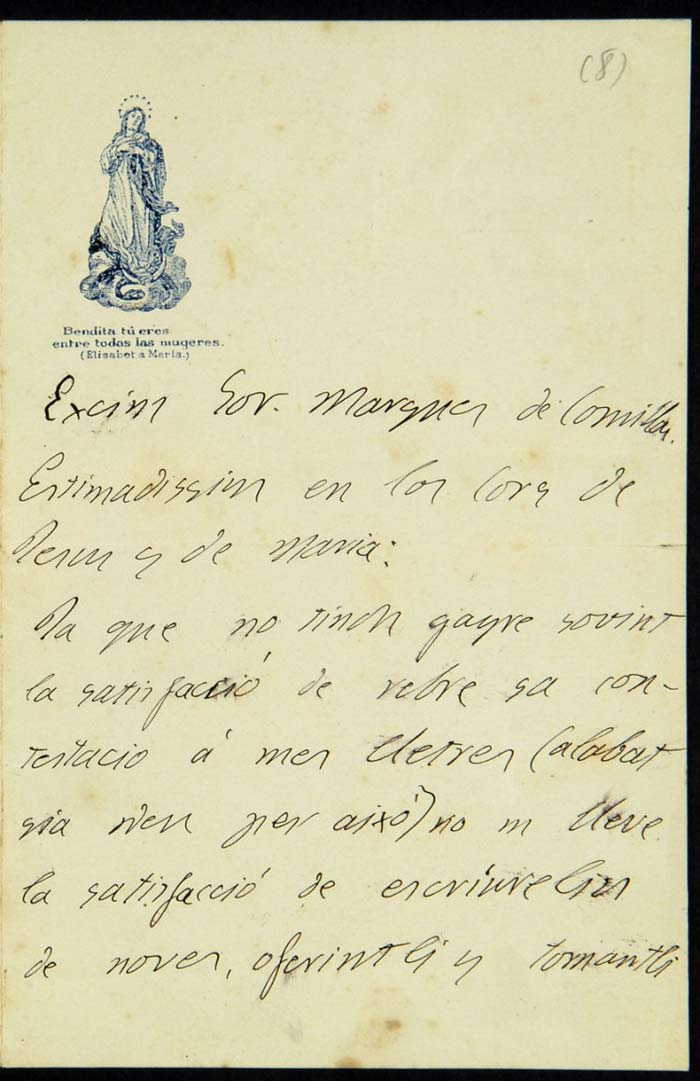 (8)
Bendita tú eres
entre todas las mugeres.
(Elisabet á María.)
Excim Sor. Marques de Comillas.
Estimadissim en los Cors de
Jesus y de Maria:
Ja que no tinch gayre sovint
la satisfacció de rebre sa con-
testacio á mes lletres (alabat
sia Deu per aixó) no m lleve
la satisfacció de escriurelin
de noves, oferintli y tornantli